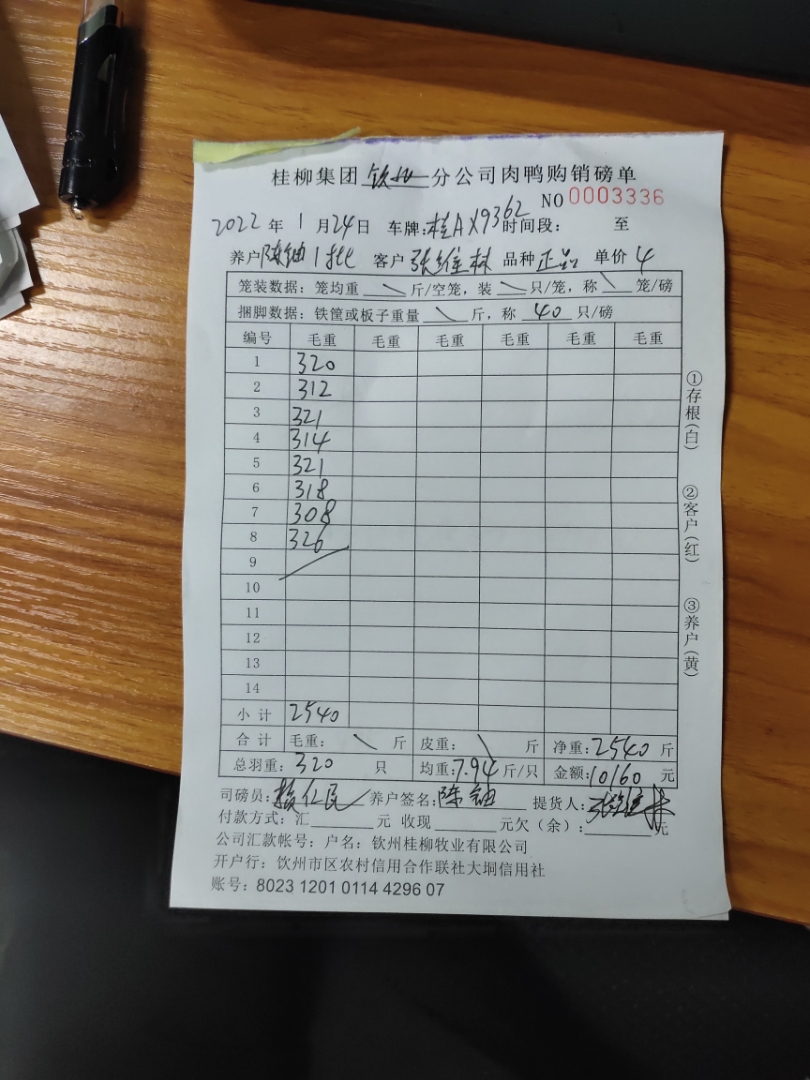 桂柳集团 钦州 分公司肉鸭购销磅单
NO 0003336
2022 年 1 月 24 日 车牌:桂A X9362 时间段: 至
养户 陈铀 1批 客户 张维林 品种 正品 单价 4
笼装数据：笼均重 斤/空笼，装 只/笼，称 笼/磅
捆脚数据：铁筐或板子重量 斤，称 40 只/磅
编号 毛重 毛重 毛重 毛重 毛重 毛重
1 320
2 312
3 321
4 314
5 321
6 318
7 308
8 326
9
10
11
12
13
14
小计 2540
合计 毛重： 斤 皮重： 斤 净重：2540 斤
总羽重：320 只 均重：7.94 斤/只 金额：10160 元
司磅员： 仁民 养户签名：陈铀 提货人：张维林
付款方式：汇 元 收现 元欠（余）： 元
公司汇款帐号：户名：钦州桂柳牧业有限公司
开户行：钦州市区农村信用合作联社大垌信用社
账号：8023 1201 0114 4296 07
①存根(白)
②客户(红)
③养户(黄)